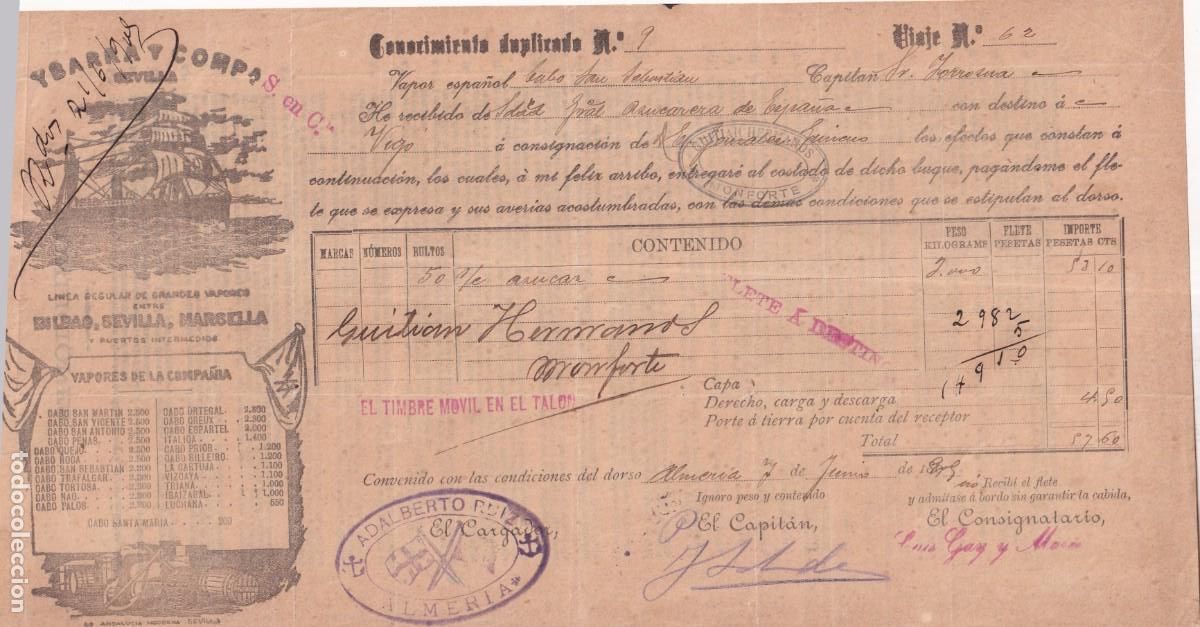 YBARRA Y COMPA
SEVILLA
S. en C.ª
LINEA REGULAR DE GRANDES VAPORES
ENTRE
BILBAO, SEVILLA, MARSELLA
Y PUERTOS INTERMEDIOS
VAPORES DE LA COMPAÑIA
CABO SAN MARTIN 2.500
CABO SAN VICENTE 2.500
CABO SAN ANTONIO 2.500
CABO PEÑAS
CABO QUEJO
CABO ROCA
CABO SAN SEBASTIAN
CABO TRAFALGAR
CABO TORTOSA
CABO NAO
CABO PALOS
CABO ORTEGAL 2.800
CABO CREUX 2.300
CABO ESPARTEL 2.000
ITALICA 1.400
CABO PRIOR 1.200
CABO SILLEIRO 1.200
LA CARTUJA 1.100
VIZCAYA 1.100
TRIANA 1.100
IBAIZABAL 1.000
LUCHANA 550
CABO SANTA MARIA 200
LA ANDALUCIA MODERNA SEVILLA
Conocimiento duplicado N.º 9 Viaje N.º 62
Vapor español Cabo San Sebastian Capitan Sr.
He recibido de Sdad Gral Azucarera de España con destino á
Vigo á consignación de los efectos que constan á
continuación, los cuales, á mi feliz arribo, entregaré al costado de dicho buque, pagándome el fle-
te que se expresa y sus averias acostumbradas, con las demas condiciones que se estipulan al dorso.
GUITIAN HERMANOS
MONFORTE
MARCAS NÚMEROS BULTOS CONTENIDO PESO KILOGRAMS FLETE PESETAS IMPORTE PESETAS CTS
50 s/c azucar 53 10
FLETE A DESTINO
Guitian Hermanos
Monforte
2 982
5
14 9 1 0
Capa
Derecho, carga y descarga 4 50
Porte á tierra por cuenta del receptor
Total 57 60
EL TIMBRE MOVIL EN EL TALON
Convenido con las condiciones del dorso Almeria 7 de Junio de
Ignoro peso y contenido
Recibí el flete
y admítase á bordo sin garantir la cabida,
El Cargador,
El Capitán,
El Consignatario,
ADALBERTO RUIZ
ALMERIA
todocoleccion